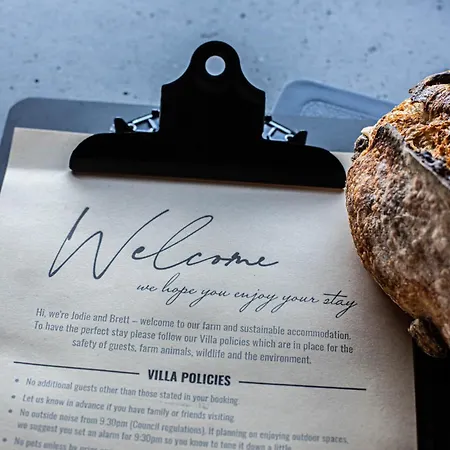 Welcome
we hope you enjoy your stay
Hi, we're Jodie and Brett – welcome to our farm and sustainable accommodation.
To have the perfect stay please follow our Villa policies which are in place for the
safety of guests, farm animals, wildlife and the environment.
VILLA POLICIES
• No additional guests other than those stated in your booking
• Let us know in advance if you have family or friends visiting
• No outside noise from 9:30pm (Council regulations). If planning on enjoying outdoor spaces,
we suggest you set an alarm for 9:30pm so you know to tune it down a little
• No pets unless by prior